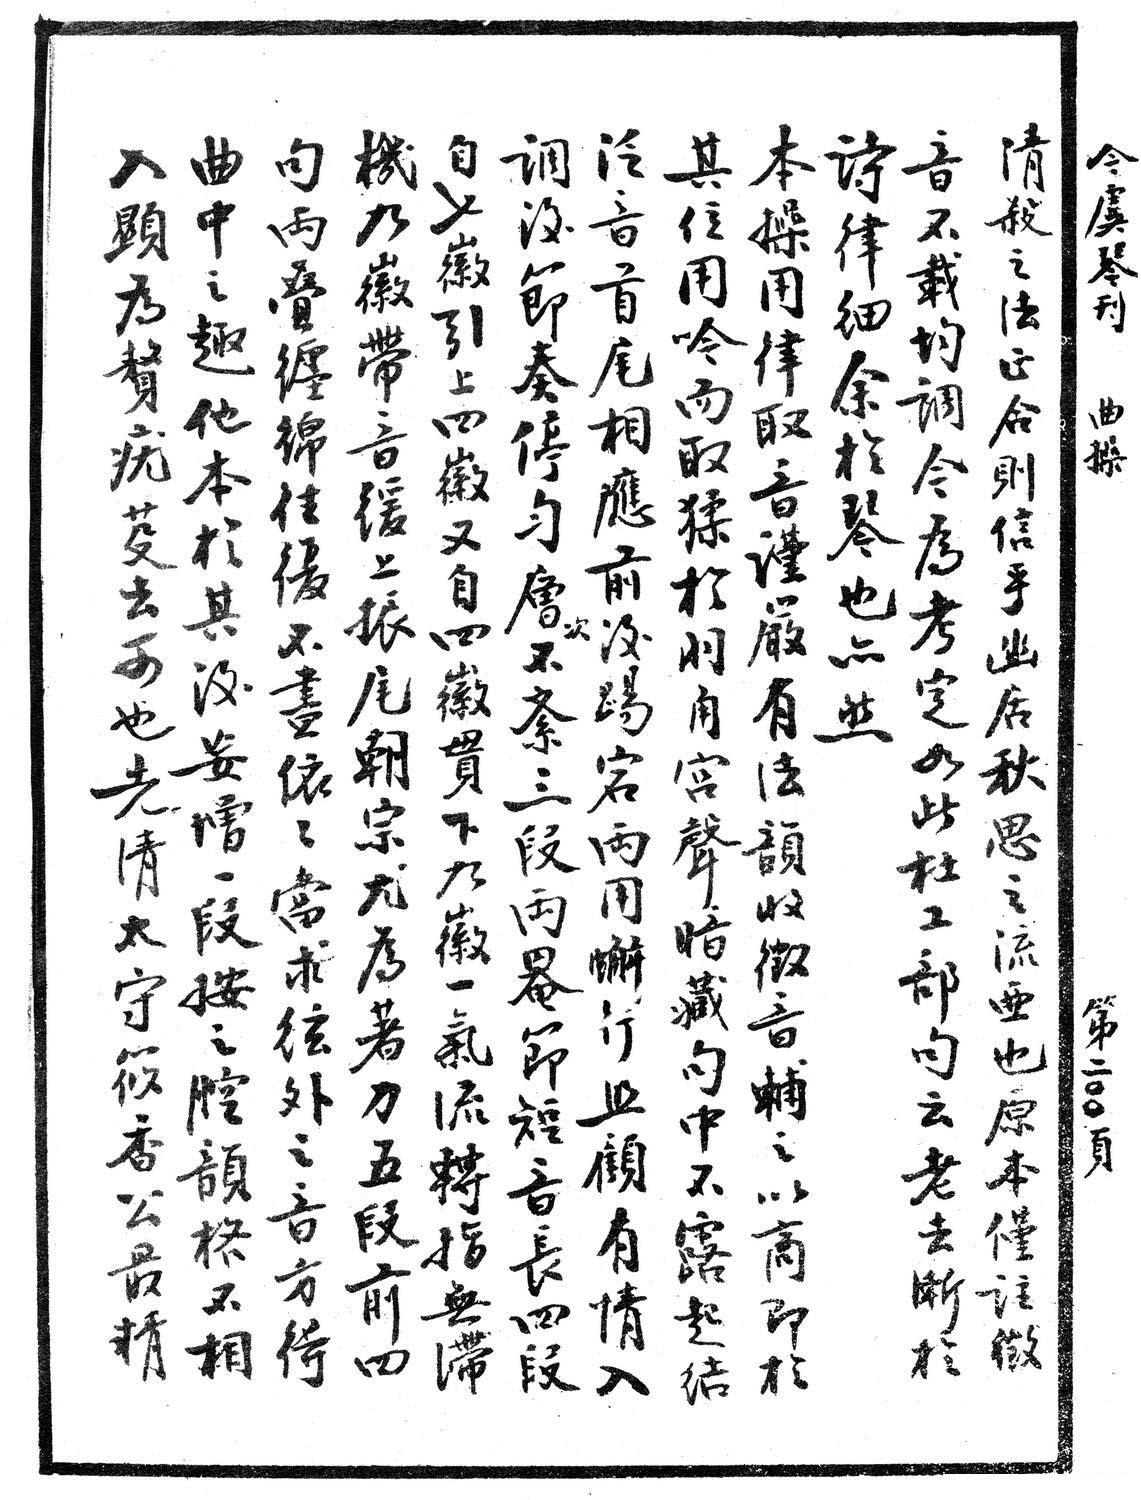 今虞琴刊　曲操　第二〇〇頁
清殺之法正合則信乎幽居秋思之流亜也原本僅註徵
音不載均調今為考定如此杜工部句云老去漸於
詩律細余於琴也亦然
本操用律取音謹嚴有法韻收徵音輔之以商即於
其位用吟而取猱於羽角宮聲暗藏句中不露起結
泛音首尾相應前後踢宕兩用懶行且顧有情入
調後節奏停勻層次不紊三段兩罨節短音長四段
自七徽引上四徽又自四徽貫下九徽一氣流轉指無滯
機九徽帶音緩上振尾朝宗尤為著力五段前四
句兩疊纏綿往復不盡依々當求弦外之音方得
曲中之趣他本於其後妄增一段按之腔韻格不相
入顯為贅疣芟去可也先清太守筱香公最精